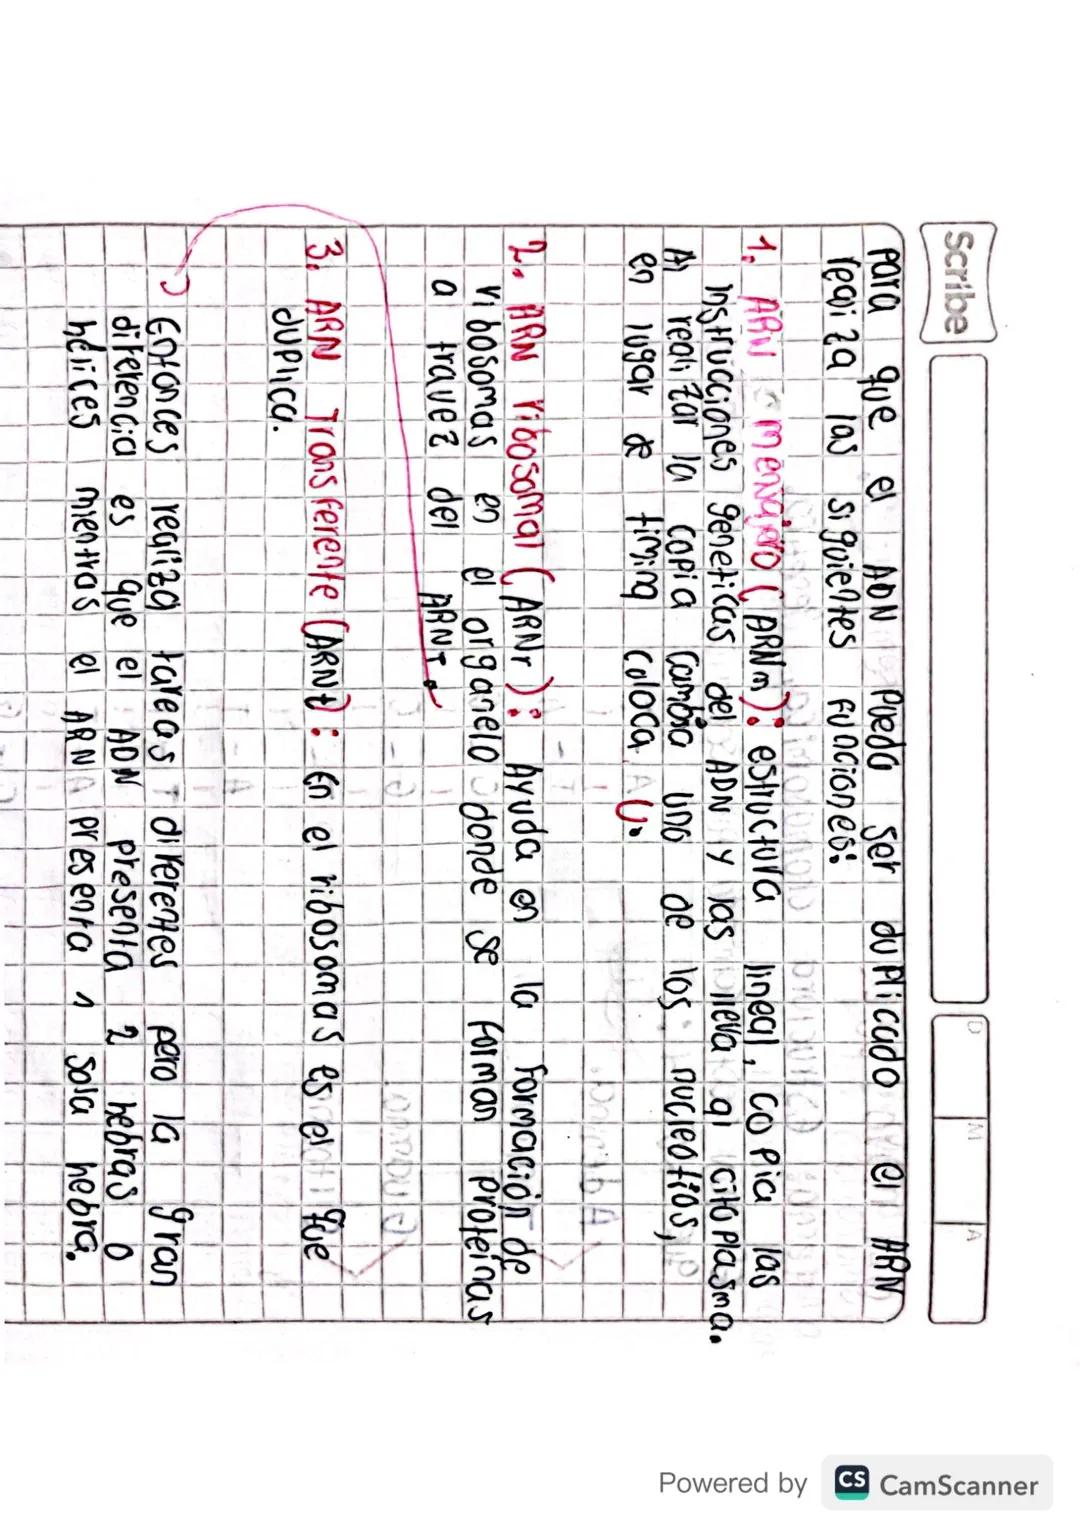 Scribe
D M A
Para que el ADN Pueda ser duPlicado el ARN
realiza las siguientes funciones:
1. ARN mensajero (ARNm): estructura lineal, coPia las
instrucciones geneticas del ADN y las lleva al citoplasma.
Al realizar la copia cambia uno de los nucleotios,
en lugar de timina coloca U.
2. ARN ribosomal (ARNr): Ayuda en la formación de
ribosomas en el organelo donde se forman proteínas
a travez del ARNT.
3. ARN Transferente (ARNt): En el ribosomas es el que
duplica.
Entonces realiza tareas diferentes pero la gran
diferencia es que el ADN presenta 2 hebras o
hélices mientras el ARN presenta 1 sola hebra.
Powered by CS CamScanner